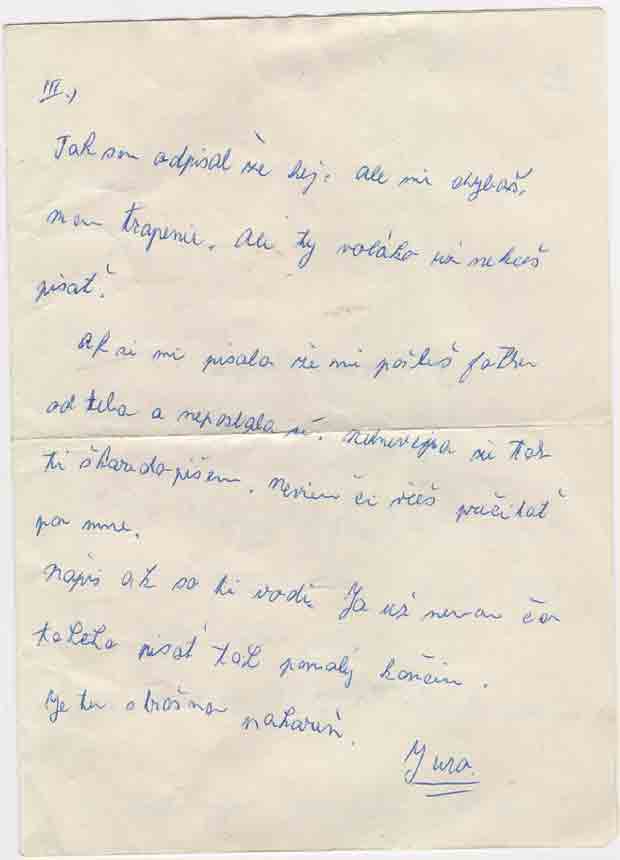 III.)
Tak som odpísal že hej. ale mi chybaš.
mam trapenie. Ale ty voláko už nekceš
písať.
Ak si mi písala že mi pošleš fotku
od teba a neposlala si. nehnevajsa že tak
ti škaredo píšem. Neviem či vieš prečítať
po mne.
Nápíš ak sa ti vodí. Ja už nemam čo
takeho písať tak pomalý končím.
Je tu strašna
Juro.